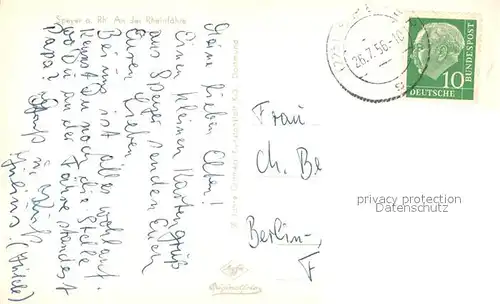 Speyer a. Rh. An der Rheinfähre
Meine lieben Alten!
Einen kleinen Kartengruß
aus Speyer senden Euch
Eure Lieben.
Bei uns ist alles wohlauf.
Kennst Du noch die Stelle
wo Du an der Fähre standest
Papa? Gruß u. Kuß
26.7.56-10
10
DEUTSCHE
BUNDESPOST
Frau
Ch. Be
Berlin-,
F
privacy protection
Datenschutz